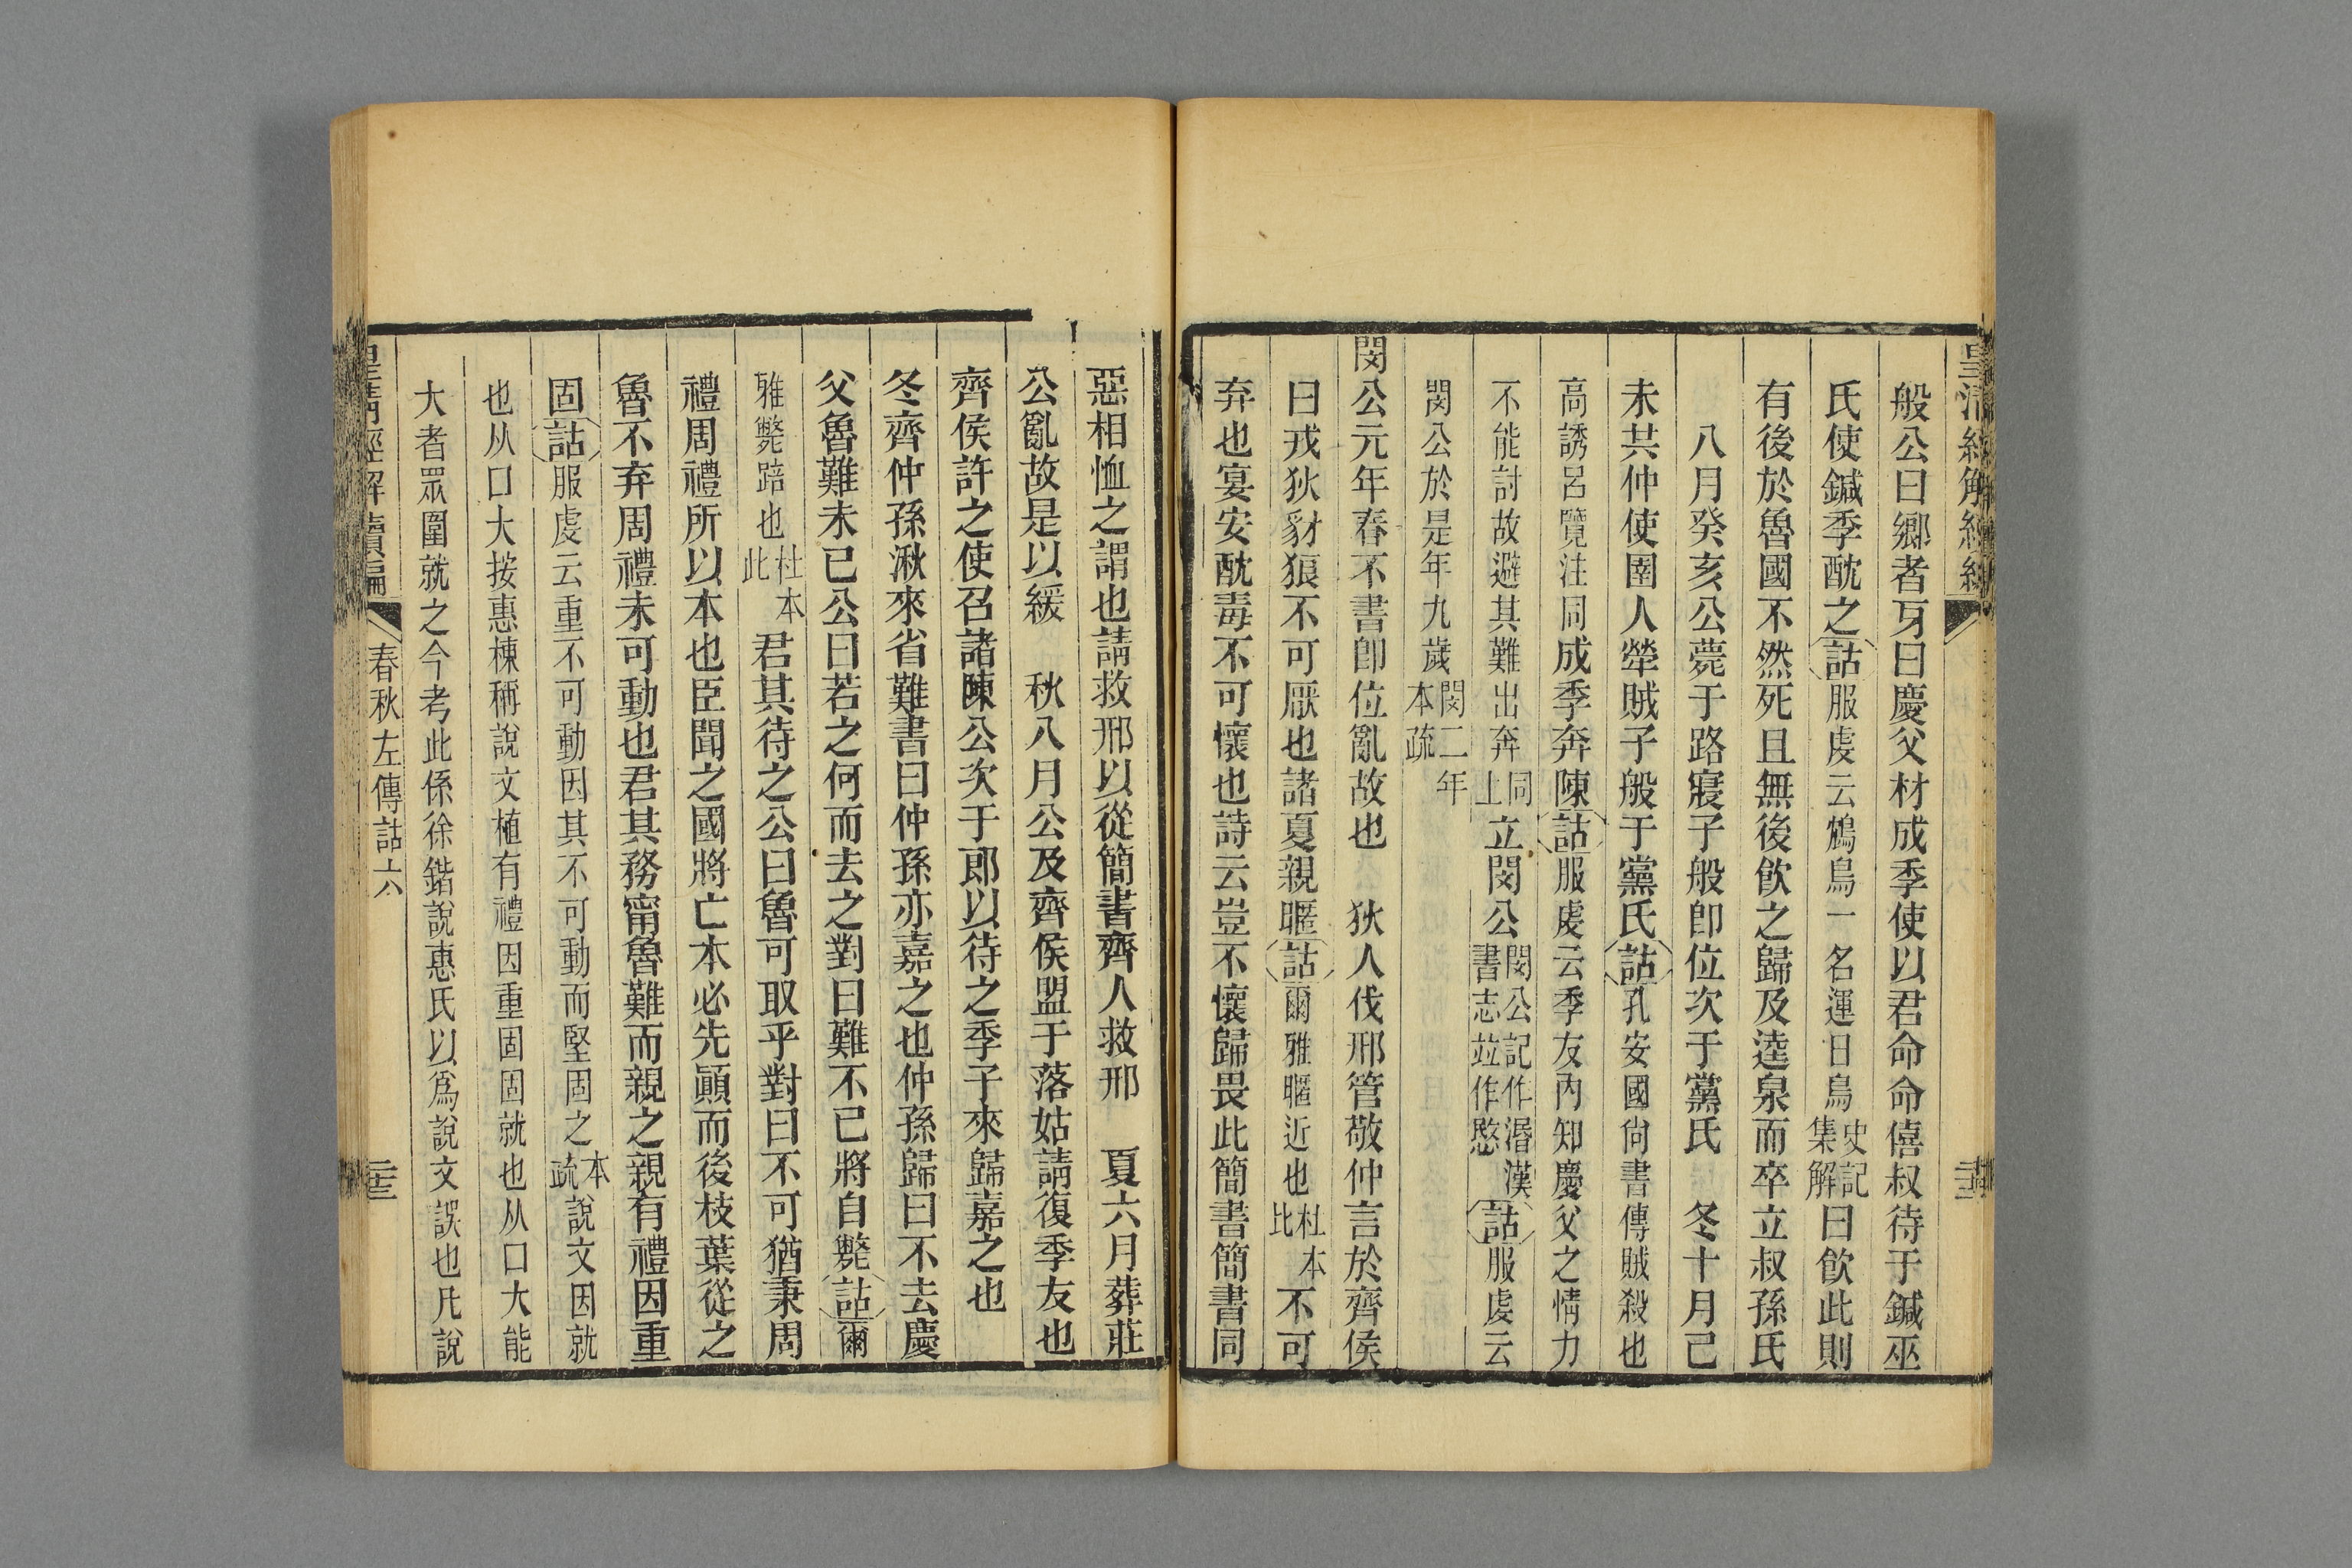 般公曰鄉者牙曰慶父材成季使以君命命僖叔待于鍼巫
氏使鍼季酖之詁服虔云鴆鳥一名運日鳥史記集解曰飲此則
有後於魯國不然死且無後飲之歸及逵泉而卒立叔孫氏
八月癸亥公薨于路寢子般卽位次于黨氏 冬十月己
未共仲使圉人犖賊子般于黨氏詁孔安國尙書傳賊殺也
高誘呂覽注同成季奔陳詁服虔云季友內知慶父之情力
不能討故避其難出奔同上立閔公閔公記作湣漢書志竝作愍詁服虔云
閔公於是年九歲閔二年本疏
閔公元年春不書卽位亂故也 狄人伐邢管敬仲言於齊侯
曰戎狄豺狼不可厭也諸夏親暱詁爾雅暱近也杜本此不可
弃也宴安酖毒不可懷也詩云豈不懷歸畏此簡書簡書同
惡相恤之謂也請救邢以從簡書齊人救邢 夏六月葬莊
公亂故是以緩 秋八月公及齊侯盟于落姑請復季友也
齊侯許之使召諸陳公次于郎以待之季子來歸嘉之也
冬齊仲孫湫來省難書曰仲孫亦嘉之也仲孫歸曰不去慶
父魯難未已公曰若之何而去之對曰難不已將自斃詁爾
雅斃踣也杜本此君其待之公曰魯可取乎對曰不可猶秉周
禮周禮所以本也臣聞之國將亡本必先顚而後枝葉從之
魯不弃周禮未可動也君其務甯魯難而親之親有禮因重
固詁服虔云重不可動因其不可動而堅固之本疏說文因就
也从口大按惠棟稱說文植有禮因重固固就也从口大能
大者眾圍就之今考此係徐鍇說惠氏以爲說文誤也凡說
皇淸經解續編 春秋左傳詁六